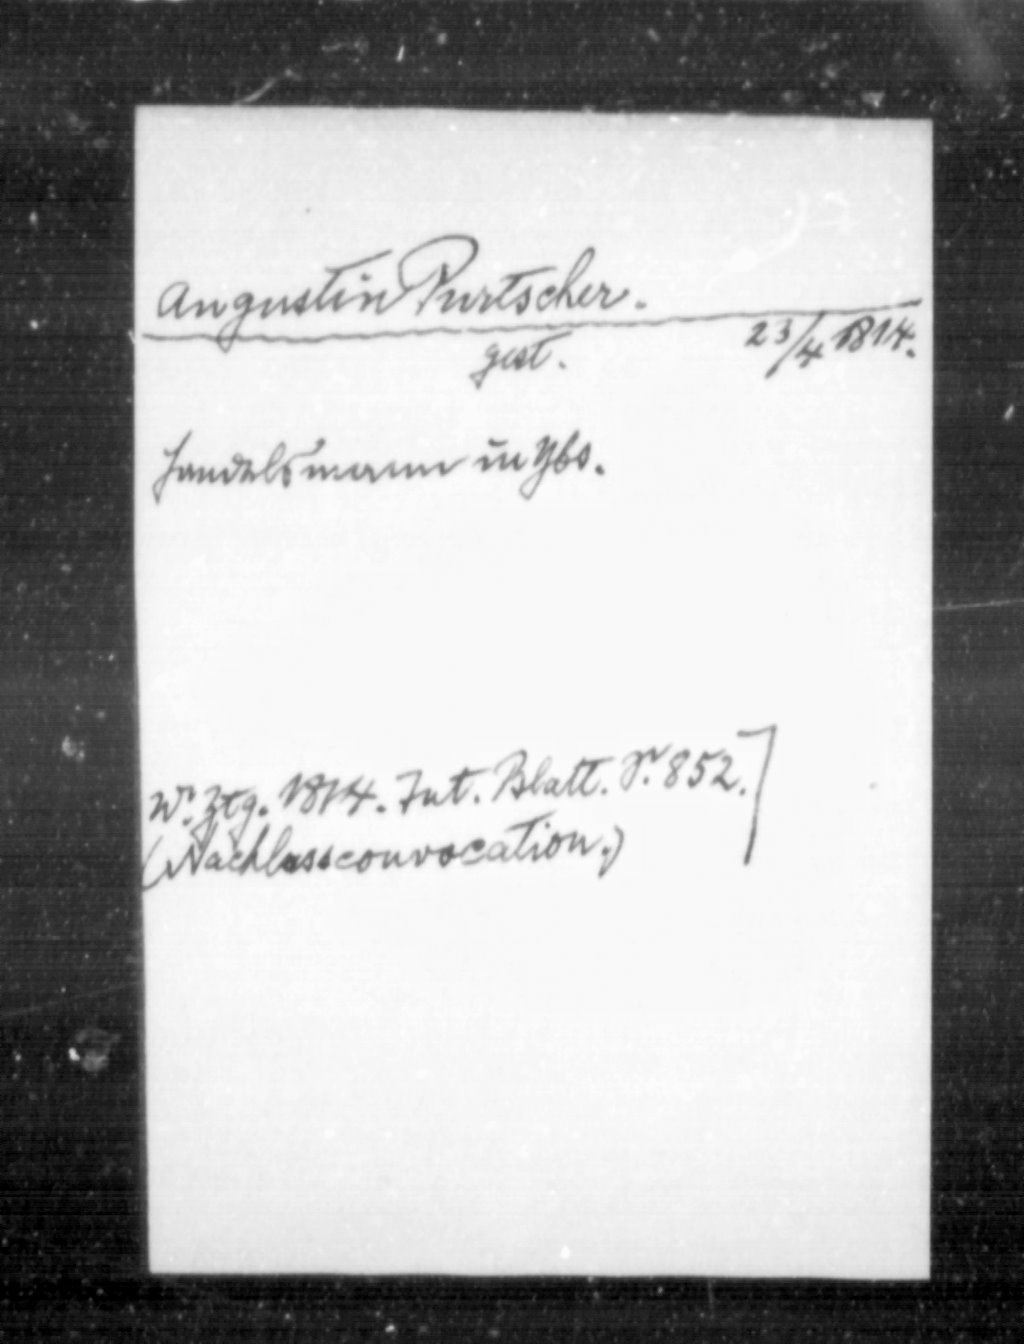 Augustin Purtscher.
gest. 23/4 1814.
Handelsmann in Ybs.
Wr. Ztg. 1814. Int. Blatt. S. 852.
(Nachlassconvocation.)